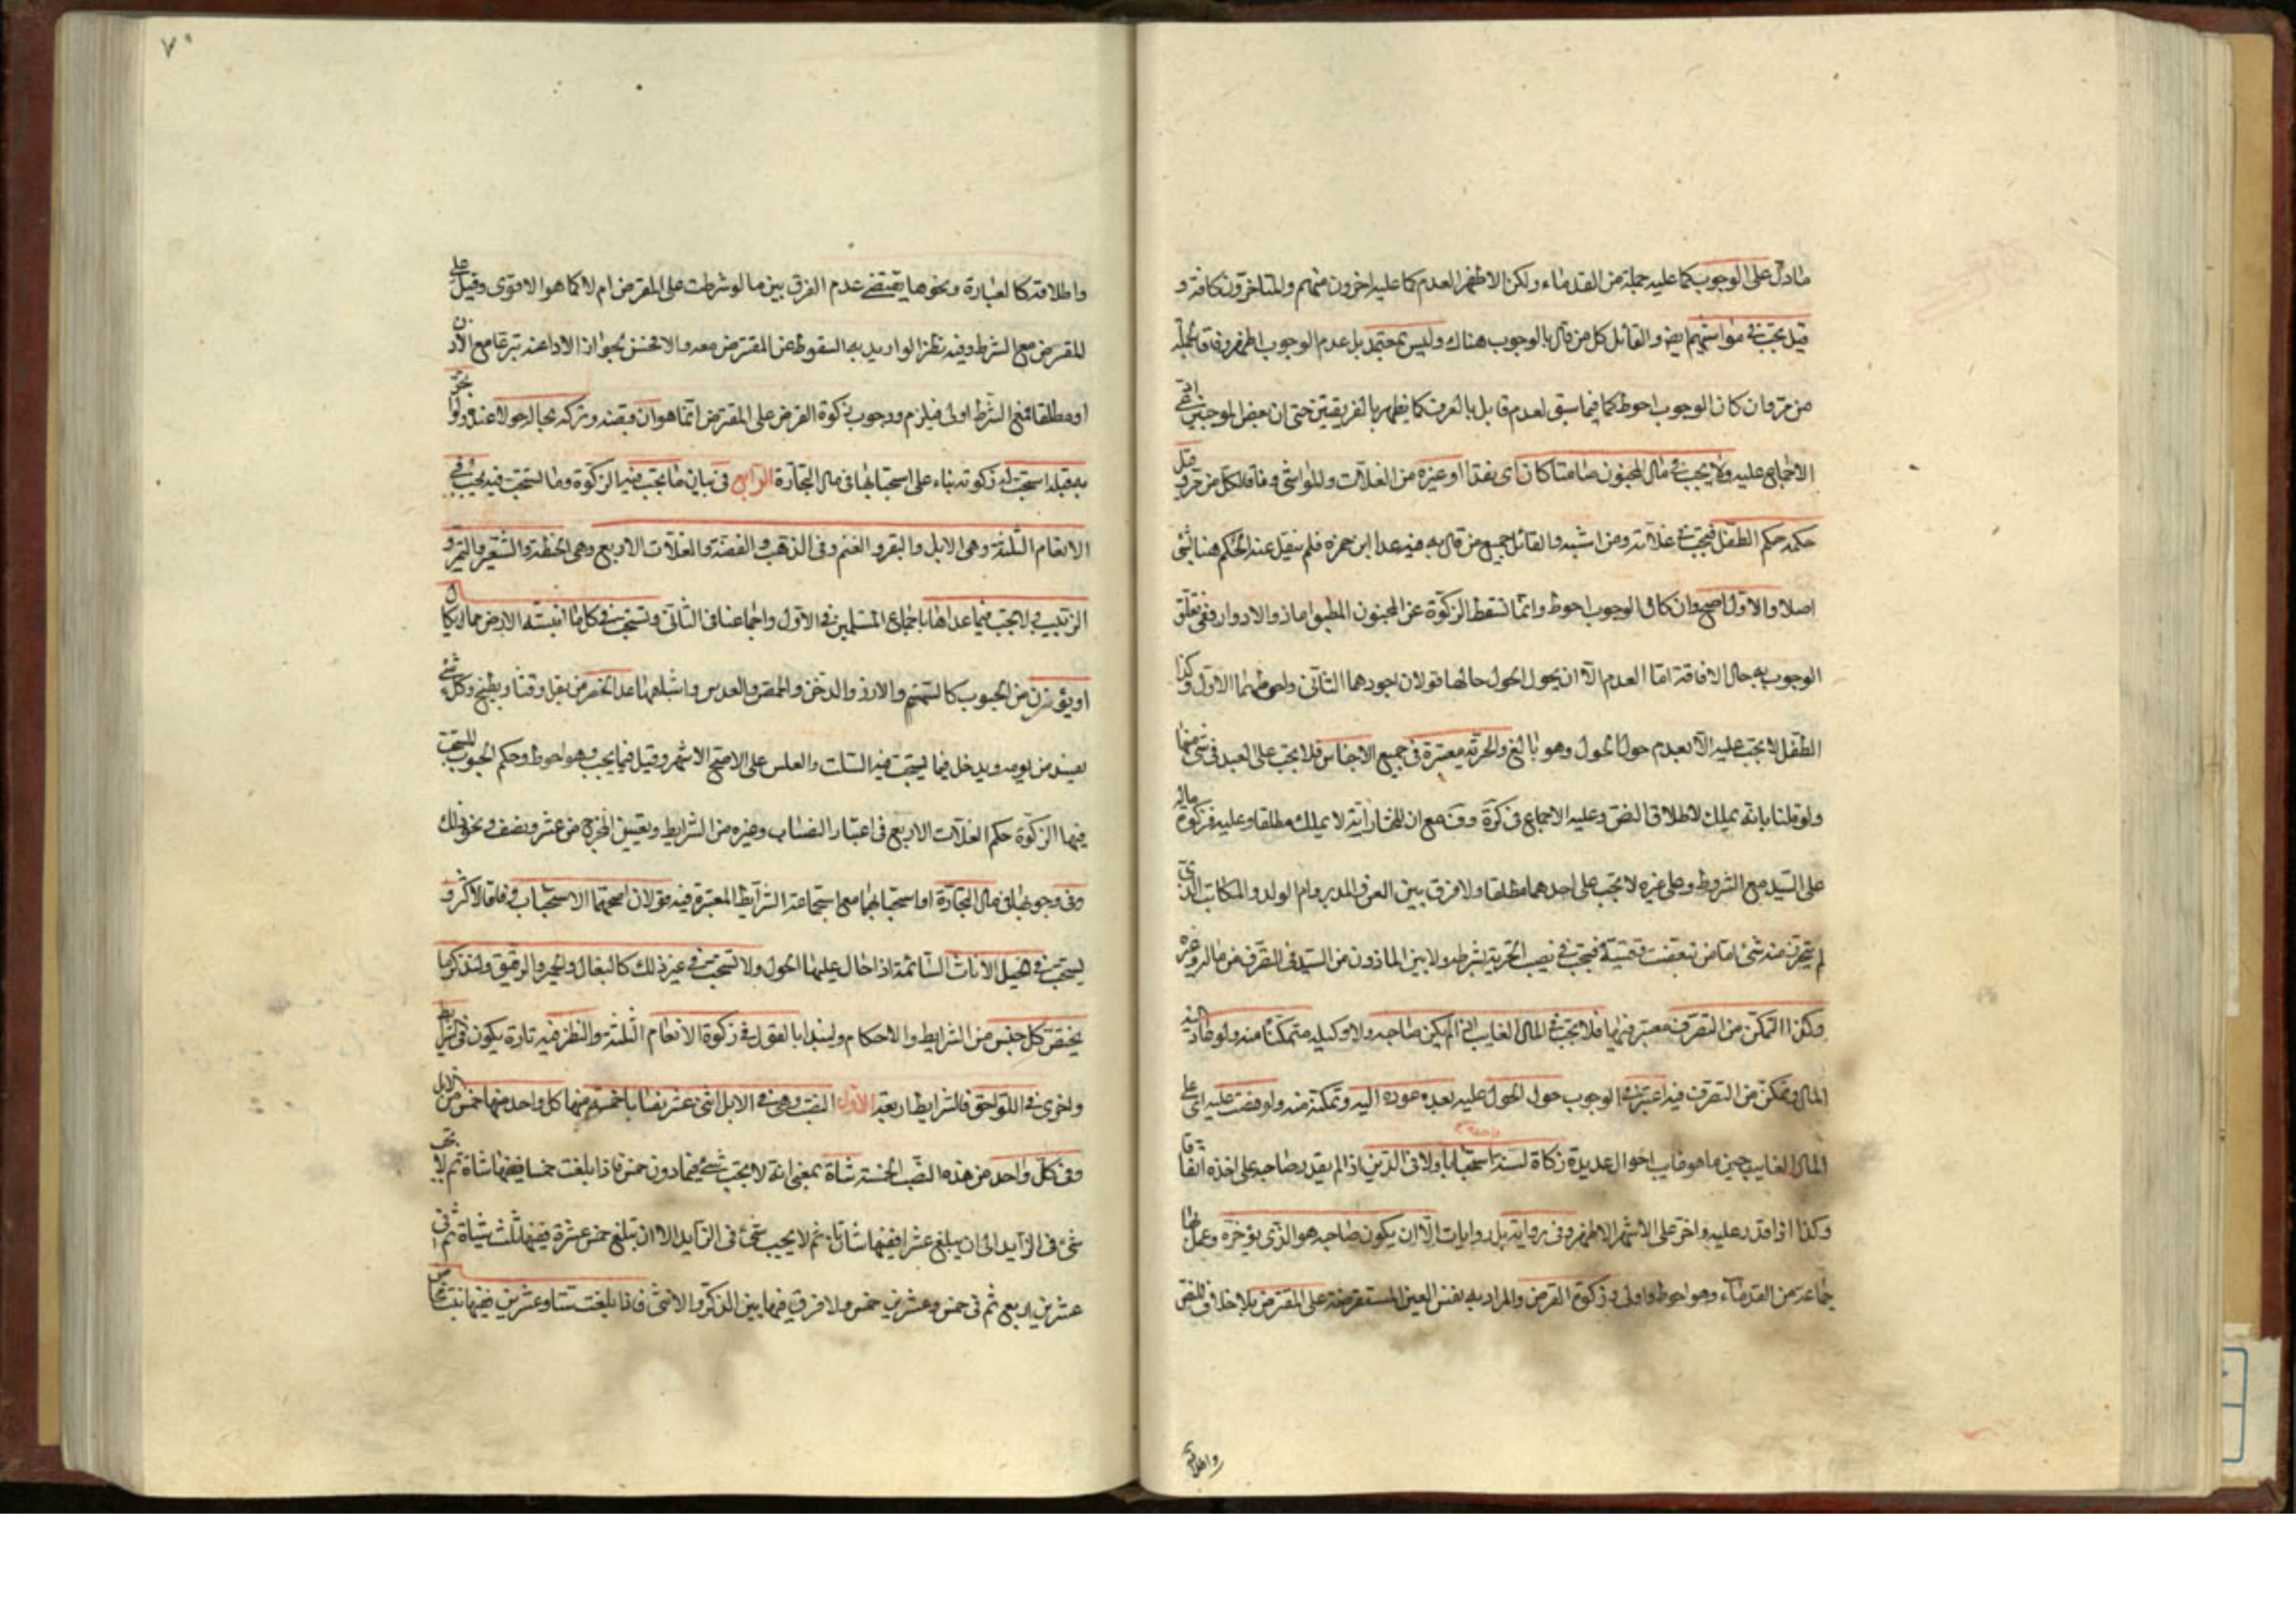 مادل على الوجوب كما عليه جملة من القدماء ولكن الاظهر العدم كما عليه اخرون منهم والمتاخرون كافة و
قيل تجب في مواشيهم ايضا والقائل كل من قال بالوجوب هناك وليس بمعتمد بل عدم الوجوب اظهر وفاقا لجملة
من مر وان كان الوجوب احوط كما فيما سبق لعدم قابل بالفرق كما يظهر بالفريقين حتى ان بعض الموجبين ادعى
الاجماع عليه ولا يجب في مال المجنون صامتا كان اى نقدا او غيره من الغلات والمواشى وفاقا لكل من مر وقيل
حكمه حكم الطفل فتجب في غلاته ومن اشبه والقائل جميع من قال به فيه عدا ابن حمزه فلم ينقل عنه الحكم هنا بشئ
اصلا والاول اصح وان كان الوجوب احوط وانما تسقط الزكوة عن المجنون المطبق اما ذو الادوار ففى تعلق
الوجوب به حال الافاقة اما العدم الا ان يحول الحول حالها قولان اجودهما الثانى واحوطهما الاول وكذا
الطفل لا يجب عليه الا بعدم حول الحول وهو بالغ والحرية معتبرة فى جميع الاجناس فلا يجب على العبد فى شئ منها
ولو قلنا بانه يملك لاطلاق النص وعليه الاجماع فى كرة وفـ مع ان المختار انه لا يملك مطلقا وعليه فزكوة ماله
على السيد مع الشروط وعلى غيره لا تجب على احدهما مطلقا ولا فرق بين القن والمدبر وام الولد والمكاتب الذى
لم يتحرر منه شئ اما من تبعضت رقيته فيجب في نصيب الحرية بشرطه ولا بين الماذون من السيد فى التصرف فى ماله وغيره
وكذا التمكن من التصرف معتبر فيها فلا تجب في المال الغايب اذا لم يكن صاحبه ولا وكيله متمكنا منه ولو عاد اليه
المال وتمكن من التصرف فيه اعتبر في الوجوب حول الحول عليه بعد عوده اليه وتمكنه منه ولو مضت عليه اى على
المال الغايب حين ما هو غايب احوال عديدة زكاة لسنة استحبابا ولا فى الدين اذا لم يقدر صاحبه على اخذه اتفاقا
وكذا اذا قدر عليه واخر على الاشهر الاظهر وفى رواية بل روايات الا ان يكون صاحبه هو الذى يؤخره وعمل بها
جماعة من القدماء وهو احوط واولى وزكوة القرض والمراد به نفس العين المستقرضة على المقترض بلا خلاف للنص
واطلاقه
٧٠
واطلاقه كالعبارة ونحوها يقتضى عدم الفرق بين ما لو شرطت على المقرض ام لا كما هو الاقوى وقيل على
المقرض مع الشرط وفيه نظر الا اريد به السقوط عن المقترض معه والا نحسن بجواز الاداء عنه تبرعا مع الاذن
او مطلقا فمع الشرط اولى فيلزم ووجوب زكوة القرض على المقترض انما هو ان قبضه وتركه بحاله حولا عنده ولو اتجر
به قبله استحب له زكوته بناء على استحبابها فى مال التجارة الرابع فى بيان ما يجب فيه الزكوة وما تستحب فيه يجب في
الانعام الثلثة وهى الابل والبقر والغنم وفى الذهب والفضة والغلات الاربع وهى الحنطة والشعير والتمر و
الزبيب ولا تجب فيما عداها باجماع المسلمين في الاول واجماعنا فى الثانى وتستحب فى كل ما انبتته الارض مما يكال
او يوزن من الحبوب كالسمسم والارز والدخن والحمص والعدس واشباهها عدا الخضر من بقل وقثا وبطيخ وكل شئ
يفسد من يومه ويدخل فيما تستحب فيه السلت والعلس على الاصح الاشهر وقيل فيما يجب وهو احوط وحكم الحبوب المستحب
فيها الزكوة حكم الغلات الاربع فى اعتبار النصاب وغيره من الشرايط وتعيين المخرج من عشر ونصف ونحو ذلك
وفى وجوبها فى مال التجارة او استحبابها مع استجماعه الشرايط المعتبرة فيه قولان اصحهما الاستحباب وفاقا للاكثر و
يستحب في الخيل الاناث السائمة اذا حال عليها الحول ولا تستحب فى غير ذلك كالبغال والحمير والرقيق ولنذكر ما
يختص كل جنس من الشرايط والاحكام ولنبدا بالقول في زكوة الانعام الثلثة والنظر فيه تارة يكون فى الشرايط
واخرى في اللواحق فالشرايط اربعة الاول النصب وهى فى الابل اثنى عشر نصابا خمسة منها كل واحد منها خمس من الابل
وفى كل واحد من هذه النصب الخمسة شاة بمعنى انه لا يجب شئ فيما دون خمس فاذا بلغت خمسا ففيها شاة ثم لا يجب
شئ فى الزايد الى ان يبلغ عشرا ففيها شاتان ثم لا يجب شئ فى الزايد الا ان تبلغ خمس عشرة ففيها ثلث شياة ثم فى
عشرين اربع ثم فى خمس وعشرين خمس ولا فرق فيها بين الذكر والانثى فاذا بلغت ستا وعشرين ففيها بنت مخاض